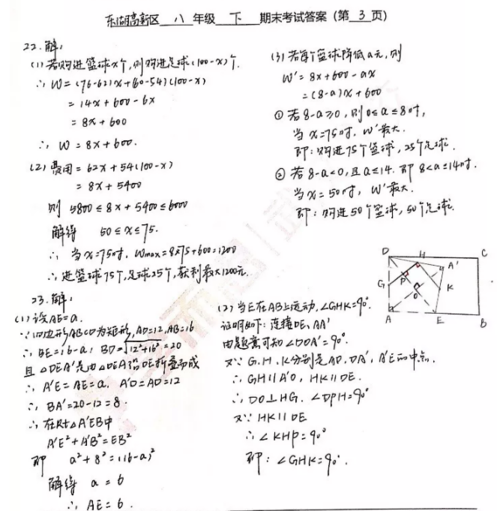 东湖高新区 八 年级 下 期末考试答案(第 3 页)
22.解:
(1)若购进篮球x个,则购进足球(100-x)个.
∴ W=(76-62)x+(60-54)(100-x)
=14x+600-6x
=8x+600
∴ W=8x+600.
(2)费用=62x+54(100-x)
=8x+5400
则 5800≤8x+5400≤6000
解得 50≤x≤75.
∴ 当x=75时, Wmax=8×75+600=1200
∴ 进篮球75个,足球25个,获利最大1200元.
(3)若每个篮球降低a元,则
W'=8x+600-ax
=(8-a)x+600
① 若8-a≥0,则0≤a≤8时,
当x=75时, W'最大.
即:购进75个篮球,25个足球.
② 若8-a<0,且a≤14.即8<a≤14时.
当x=50时, W'最大.
即:购进50个篮球,50个足球.
23.解:
(1)设AE=a.
∵四边形ABCD为矩形,AD=12,AB=16
∴ BE=16-a, BD=√12²+16²=20
且△DEA'是由△DEA沿DE折叠而成
∴ A'E=AE=a, A'D=AD=12
∴ BA'=20-12=8.
∴ 在Rt△A'EB中
A'E²+A'B²=EB²
即 a²+8²=(16-a)²
解得 a=6
∴ AE=6.
D
H
C
A'
G
P
K
O
A
E
B
(2)当E在AB上运动,∠GHK=90°.
证明如下:连接DE,AA'
由题意可知∠DOA'=90°.
又∵G.H.K分别是AD.DA'.A'E的中点.
∴ GH∥A'O, HK∥DE.
∴ DO⊥HG. ∠DPH=90°
又∵HK∥DE
∴ ∠KHP=90°
即:∠GHK=90°.